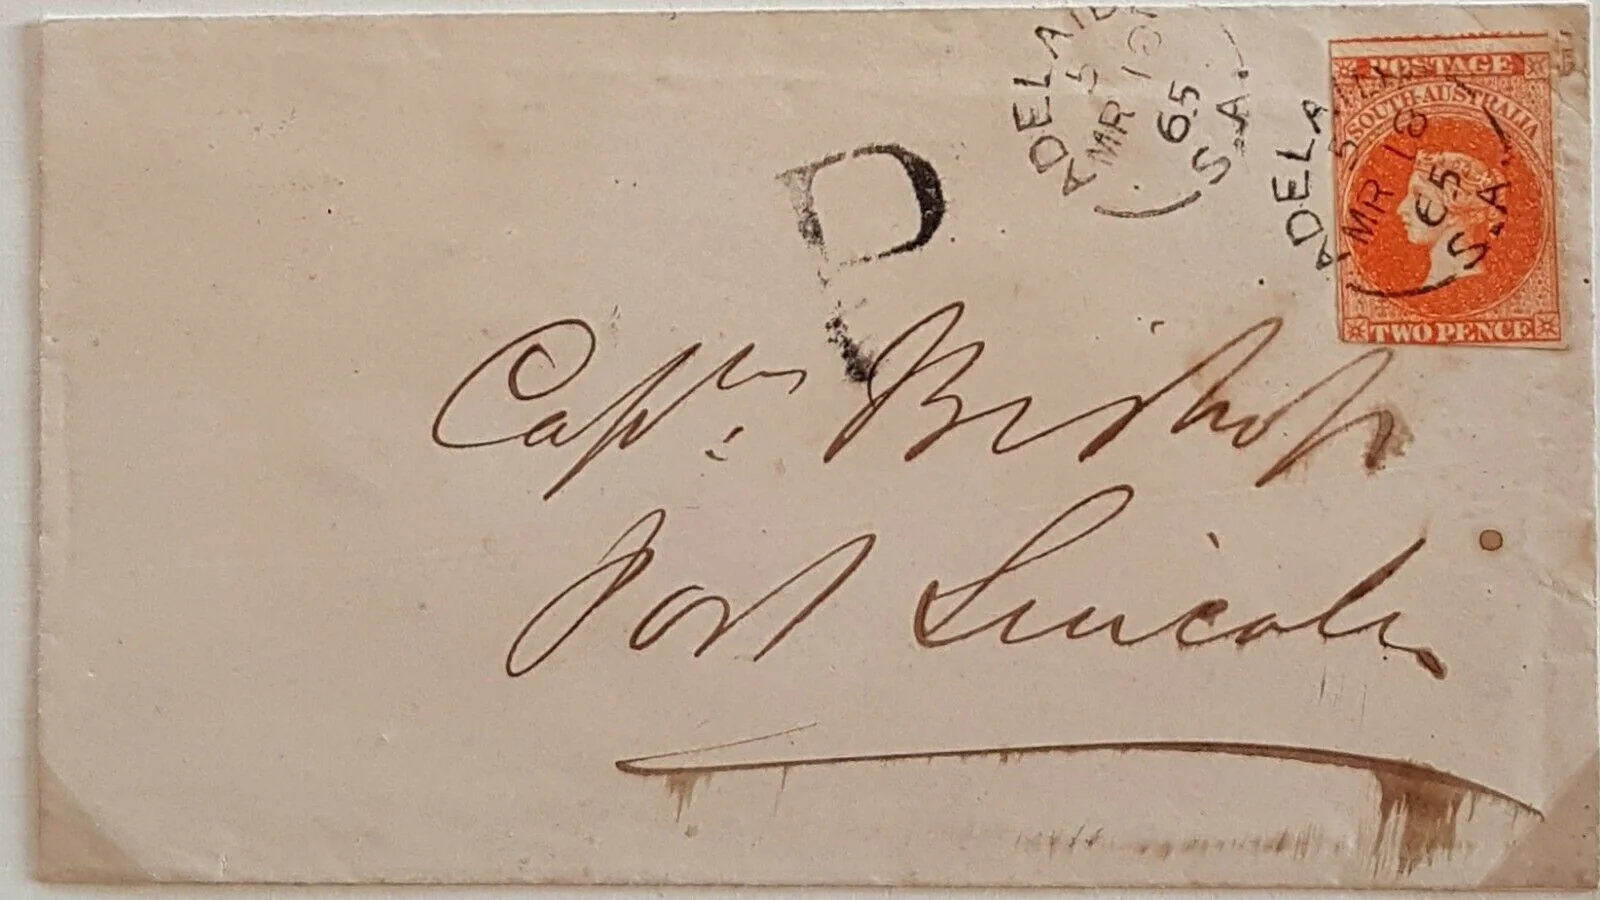 ADELAIDE
5
MR 10
65
S.A.
POSTAGE
SOUTH AUSTRALIA
TWO PENCE
ADELA
5
MR 10
65
S.A.
P
Captn. Bishop
Port Lincoln